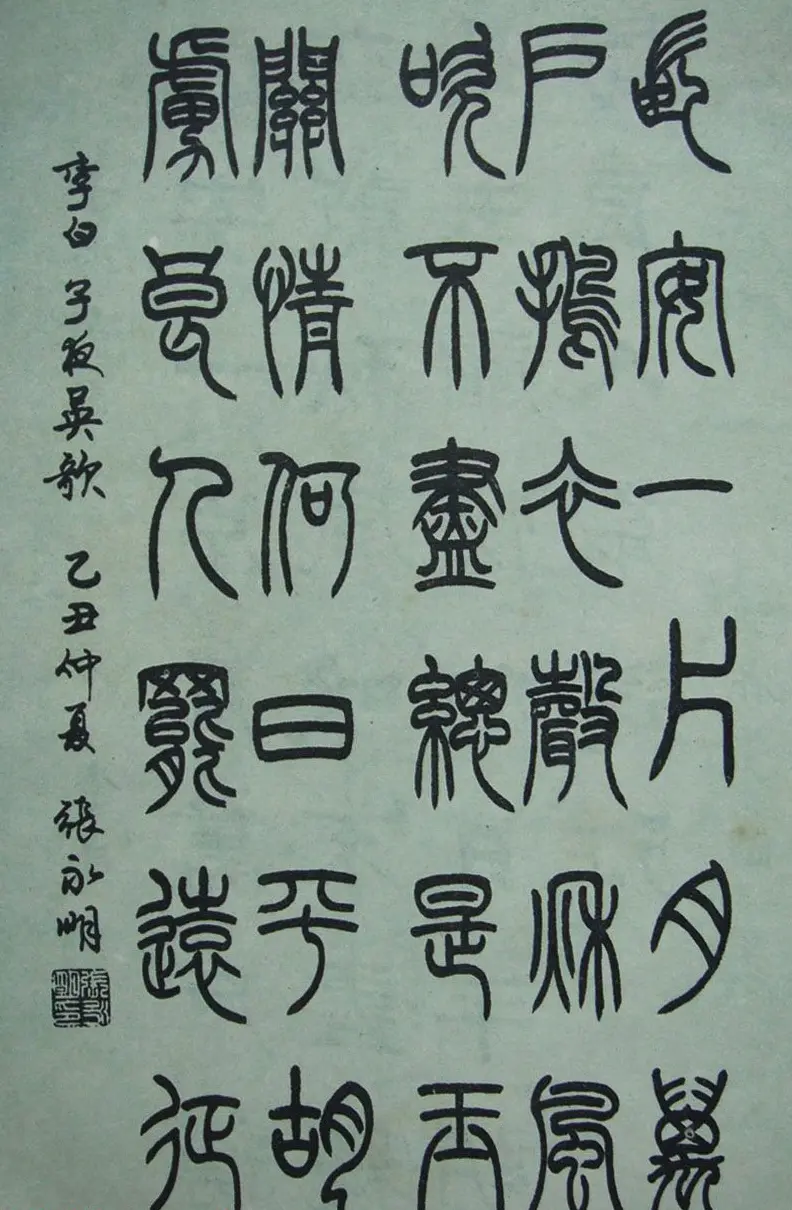 長安一片月萬
戶搗衣聲秋風
吹不盡總是玉
關情何日平胡
虜良人罷遠征
李白子夜吳歌 乙丑仲夏 張永明